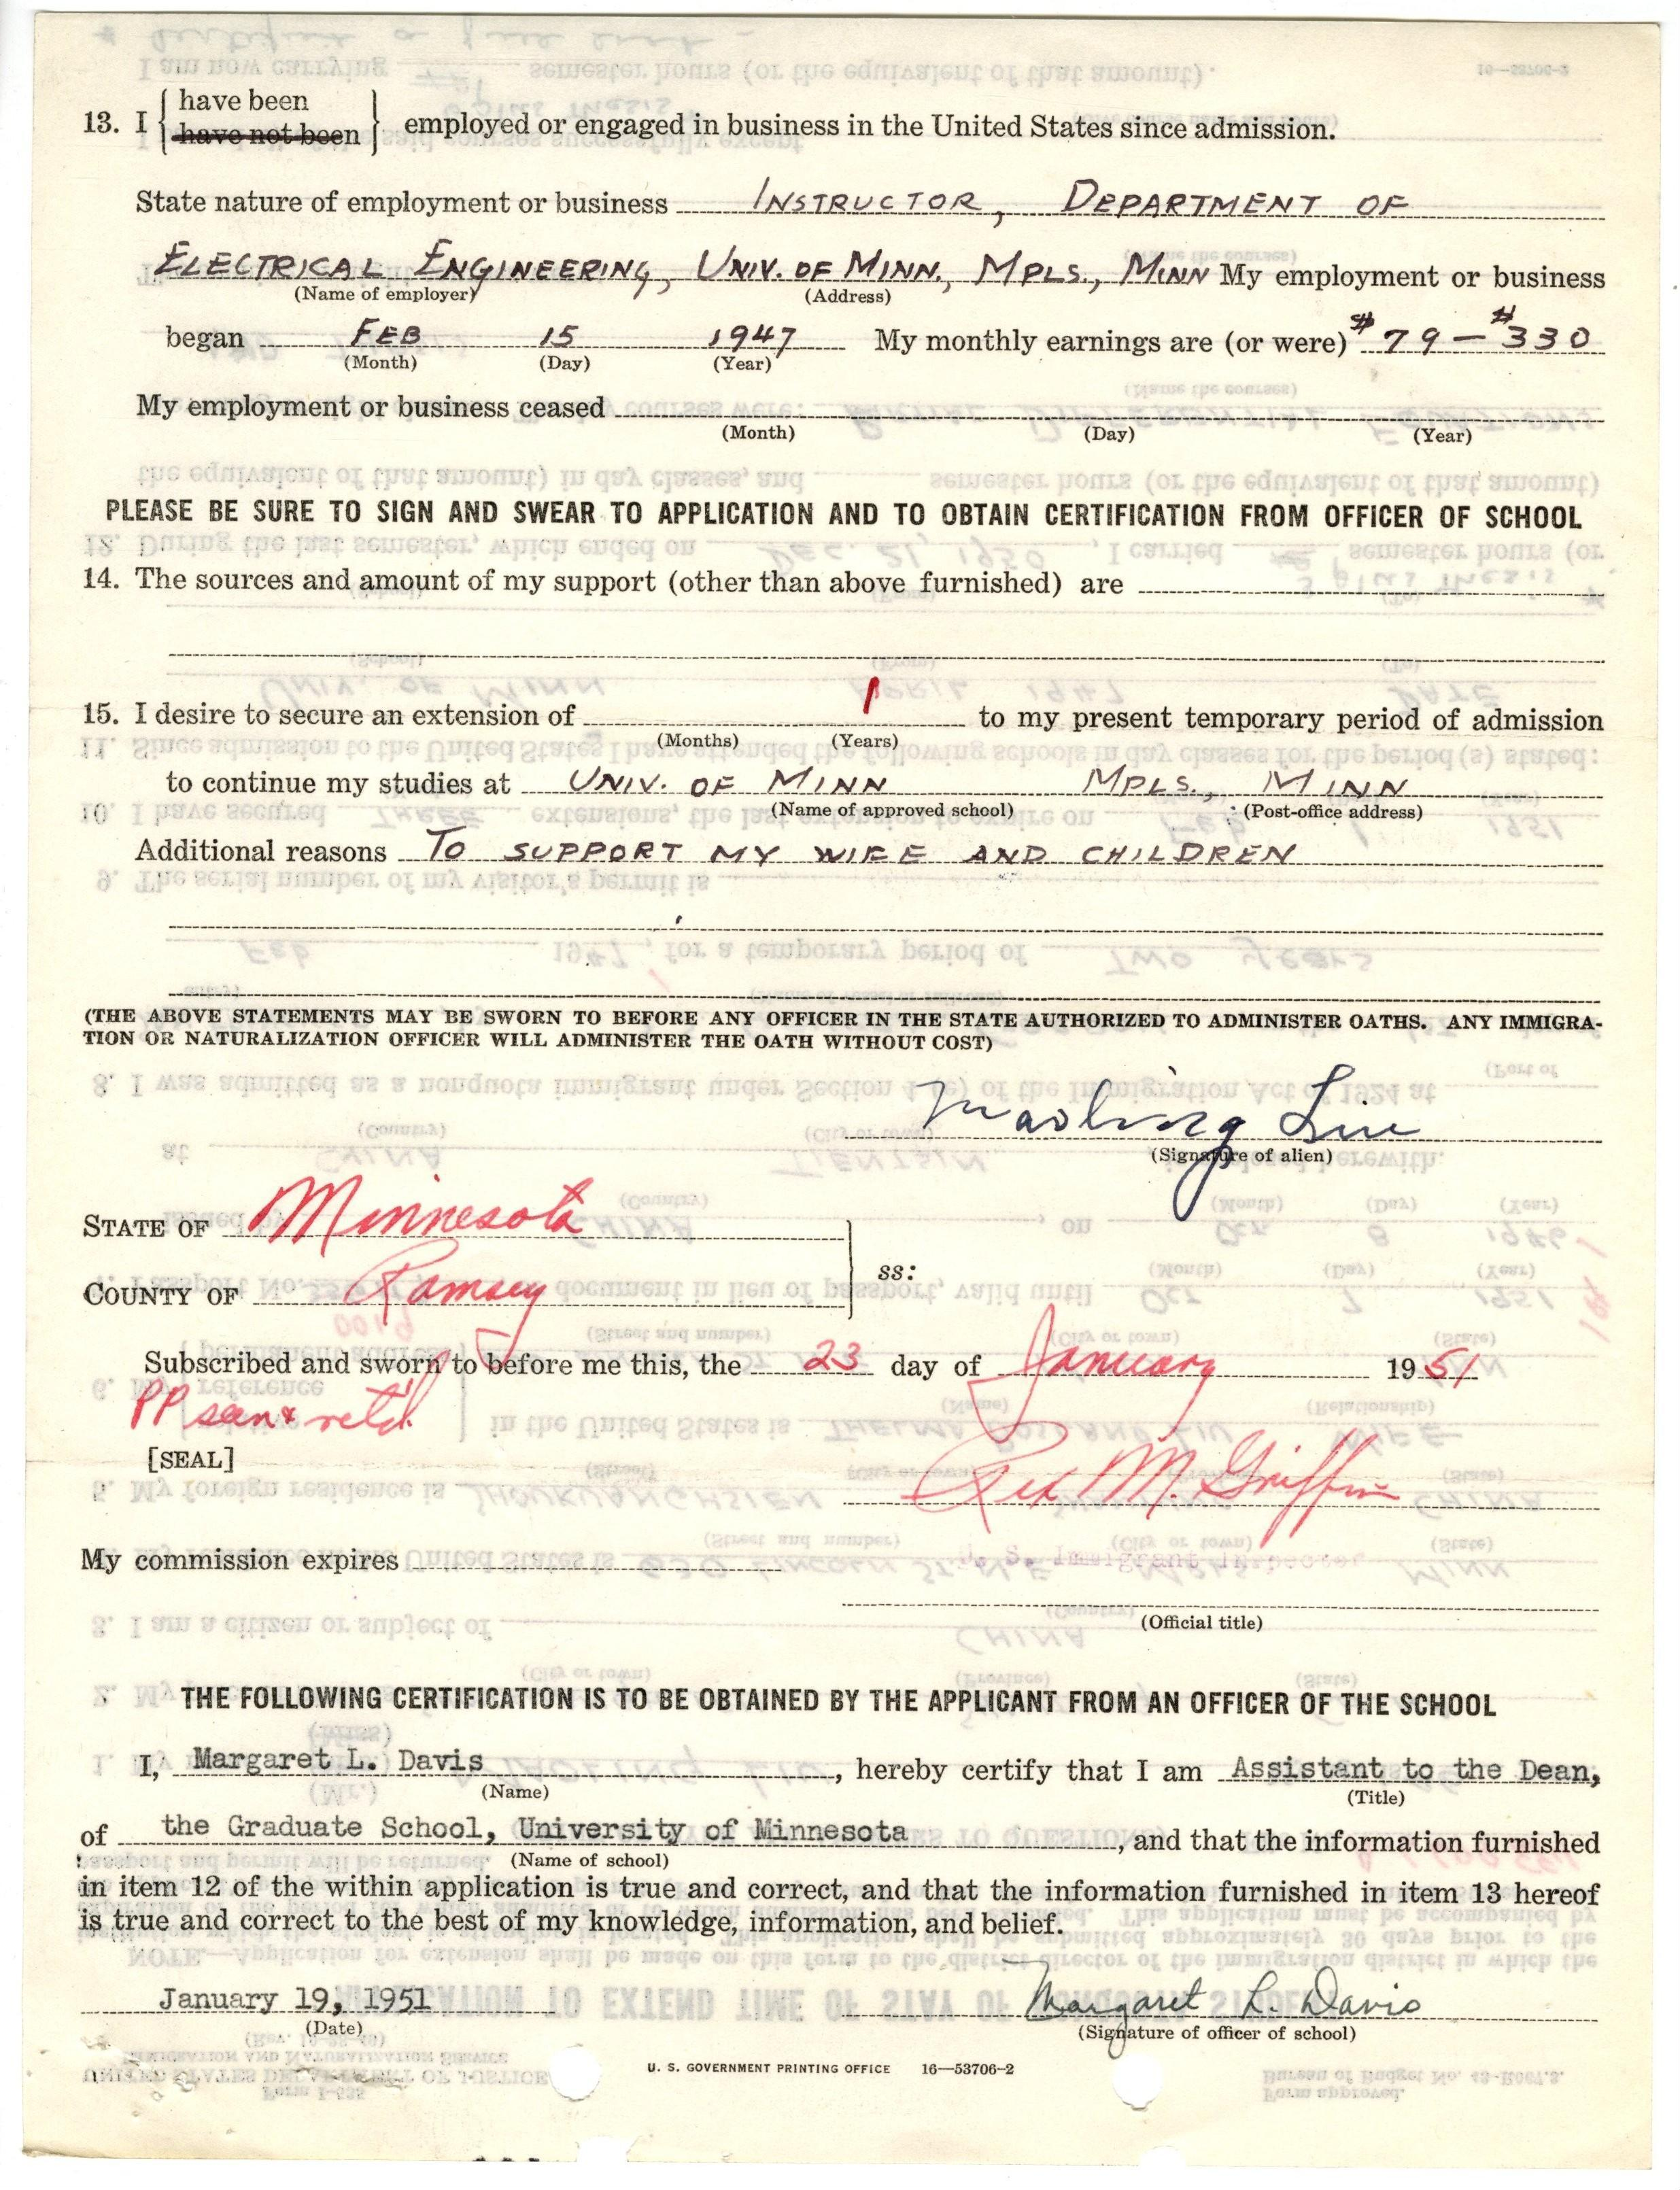 13. I { have been
have not been } employed or engaged in business in the United States since admission.
State nature of employment or business INSTRUCTOR, DEPARTMENT OF
ELECTRICAL ENGINEERING, UNIV. OF MINN., MPLS., MINN My employment or business
(Name of employer) (Address)
began FEB 15 1947 My monthly earnings are (or were) $79 — $330
(Month) (Day) (Year)
My employment or business ceased
(Month) (Day) (Year)
PLEASE BE SURE TO SIGN AND SWEAR TO APPLICATION AND TO OBTAIN CERTIFICATION FROM OFFICER OF SCHOOL
14. The sources and amount of my support (other than above furnished) are
15. I desire to secure an extension of 1 to my present temporary period of admission
(Months) (Years)
to continue my studies at UNIV. OF MINN MPLS., MINN
(Name of approved school) (Post-office address)
Additional reasons TO SUPPORT MY WIFE AND CHILDREN
(THE ABOVE STATEMENTS MAY BE SWORN TO BEFORE ANY OFFICER IN THE STATE AUTHORIZED TO ADMINISTER OATHS. ANY IMMIGRA-
TION OR NATURALIZATION OFFICER WILL ADMINISTER THE OATH WITHOUT COST)
Maoling Liu
(Signature of alien)
STATE OF Minnesota
COUNTY OF Ramsey } ss:
Subscribed and sworn to before me this, the 23 day of January 1951
PP seen & ret'd.
[SEAL]
Rex M. Griffin
My commission expires
U. S. Immigrant Inspector
(Official title)
THE FOLLOWING CERTIFICATION IS TO BE OBTAINED BY THE APPLICANT FROM AN OFFICER OF THE SCHOOL
I, Margaret L. Davis, hereby certify that I am Assistant to the Dean,
(Name) (Title)
of the Graduate School, University of Minnesota, and that the information furnished
(Name of school)
in item 12 of the within application is true and correct, and that the information furnished in item 13 hereof
is true and correct to the best of my knowledge, information, and belief.
January 19, 1951 Margaret L. Davis
(Date) (Signature of officer of school)
U. S. GOVERNMENT PRINTING OFFICE 16—53706-2